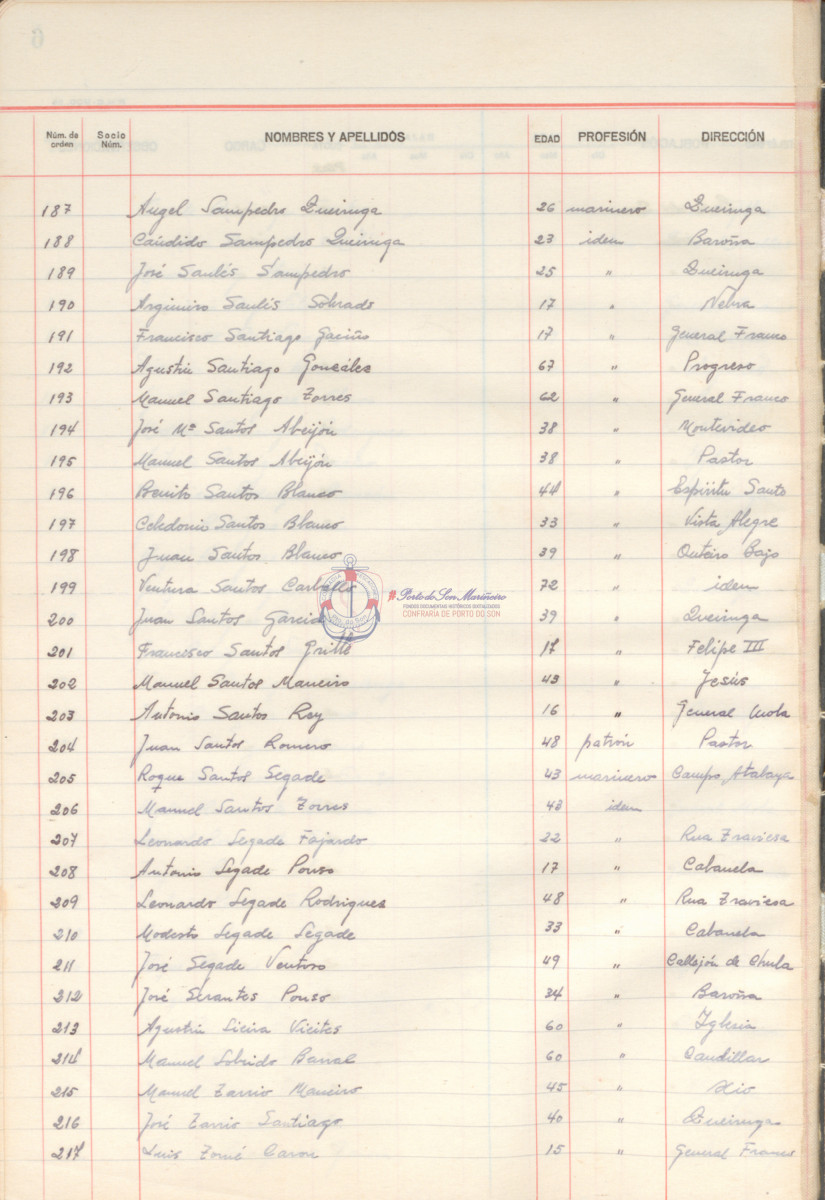 Núm. de orden Socio Núm. NOMBRES Y APELLIDOS EDAD PROFESIÓN DIRECCIÓN
187 Angel Sampedro Queiruga 26 marinero Queiruga
188 Cándido Sampedro Queiruga 23 idem Baroña
189 José Saulés Sampedro 25 " Queiruga
190 Argimiro Saulés Sobrado 17 " Nebra
191 Francisco Santiago 17 " General Franco
192 Agustín Santiago González 67 " Progreso
193 Manuel Santiago Torres 62 " General Franco
194 José Mª Santos Abeijón 38 " Montevideo
195 Manuel Santos Abeijón 38 " Pastor
196 Benito Santos Blanco 44 " Espíritu Santo
197 Celedonio Santos Blanco 33 " Vista Alegre
198 Juan Santos Blanco 39 " Outeiro Bajo
199 Ventura Santos Carballo 72 " idem
200 Juan Santos García 39 " Queiruga
201 Francesco Santos Grille 17 " Felipe III
202 Manuel Santos Maneiro 43 " Jesús
203 Antonio Santos Rey 16 " General Mola
204 Juan Santos Romero 48 patrón Pastor
205 Roque Santos Segade 43 marinero Campo Atalaya
206 Manuel Santos Torres 43 idem
207 Leonardo Segade Fajardo 22 " Rua Traviesa
208 Antonio Segade Pouso 17 " Cabanela
209 Leonardo Segade Rodríguez 48 " Rua Traviesa
210 Modesto Segade Segade 33 " Cabanela
211 José Segade Ventoso 49 " Callejón de Chula
212 José Serantes Pouso 34 " Baroña
213 Agustín Sieira Vieites 60 " Iglesia
214 Manuel Sobrido Barral 60 " Caudillar
215 Manuel Tarrio Maneiro 45 "
216 José Tarrio Santiago 40 " Queiruga
217 Luis Tomé 15 " General Franco
Porto de Son Mariñeiro
FONDOS DOCUMENTAIS HISTÓRICOS DIXITALIZADOS
CONFRARIA DE PORTO DO SON